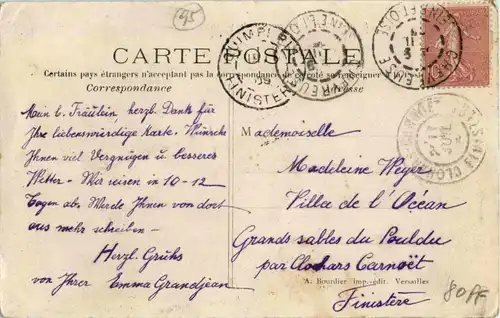 95
CARTE POSTALE
Certains pays étrangers n'acceptant pas la correspondance de ce côté se renseigner
Correspondance
Adresse
Mein l. Fräulein, herzl. Dank für
Ihre liebenswürdige Karte. Wünsche
Ihnen viel Vergnügen u. besseres
Wetter – Wir reisen in 10-12
Tagen ab. Werde Ihnen von dort
aus mehr schreiben –
Herzl. Gruhs
von Ihrer Emma Grandjean
Mademoiselle
Madeleine Weyer
Villa de l'Océan
Grands sables du Pouldu
par Clohars Carnoët
A. Bourdier imp.-édit. Versailles
Finistère
80 FF
QUIMPERLÉ
09
FINISTERE
CLOHARS-CARNOET
FINISTERE